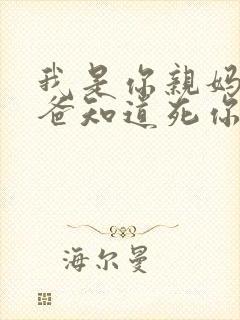 我是你親妈
爸知道死你
海尔曼